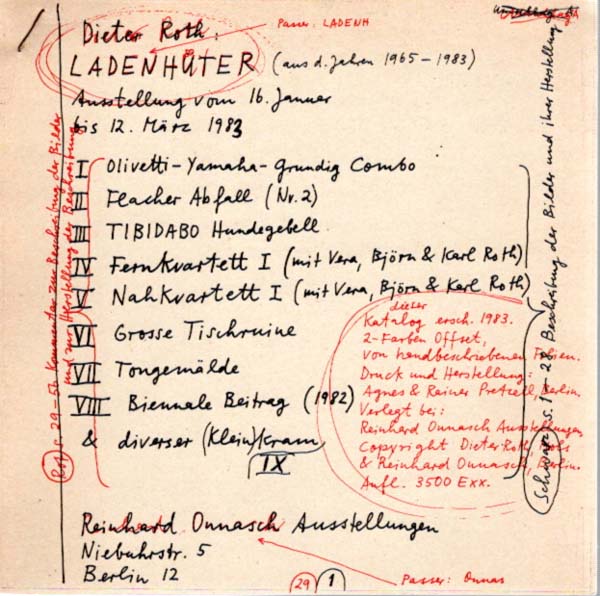 Dieter Roth:
LADENHÜTER (aus d. Jahren 1965–1983)
Passer: LADENH
Ausstellung vom 16. Januar
bis 12. März 1983
I Olivetti-Yamaha-Grundig Combo
II Flacher Abfall (Nr. 2)
III TIBIDABO Hundegebell
IV Fernkvartett I (mit Vera, Björn & Karl Roth)
V Nahkvartett I (mit Vera, Björn & Karl Roth)
VI Grosse Tischruine
VII Tongemälde
VIII Biennale Beitrag (1982)
& diverser (Klein)kram
IX
dieser
Katalog ersch. 1983.
2-Farben Offset,
von handbeschriebenen Folien.
Druck und Herstellung:
Agnes & Rainer Pretzell, Berlin.
Verlegt bei:
Reinhard Onnasch Ausstellungen,
Copyright Dieter Roth
& Reinhard Onnasch, Berlin.
Aufl. 3500 Exx.
Reinhard Onnasch Ausstellungen
Niebuhrstr. 5
Berlin 12
Passer: Onnas
29 1
Rot S. 29–50 Kommentar zur Beschreibung der Bilder
und zur Herstellung der Beschreibung
Schwarz S. 1–28 Beschreibung der Bilder und ihrer Herstellung